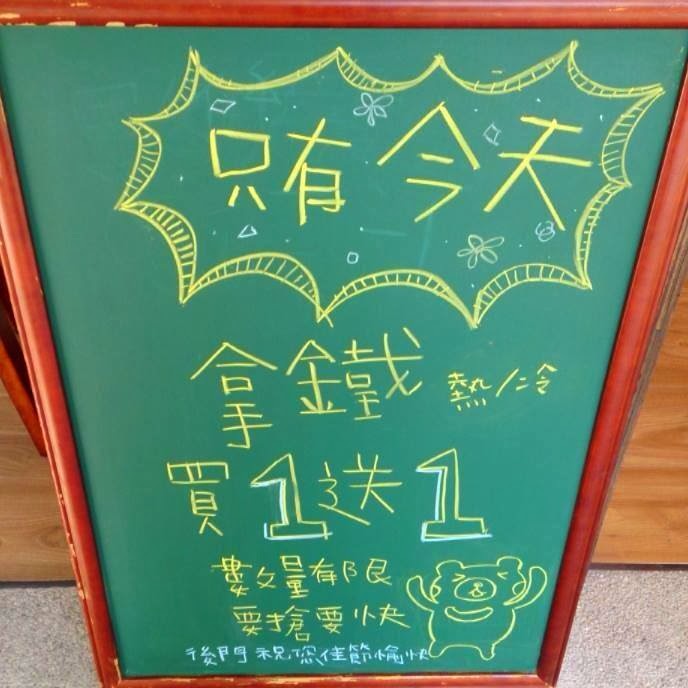 只有今天
拿鐵 熱/冷
買1送1
數量有限
要搶要快
後門祝您佳節愉快